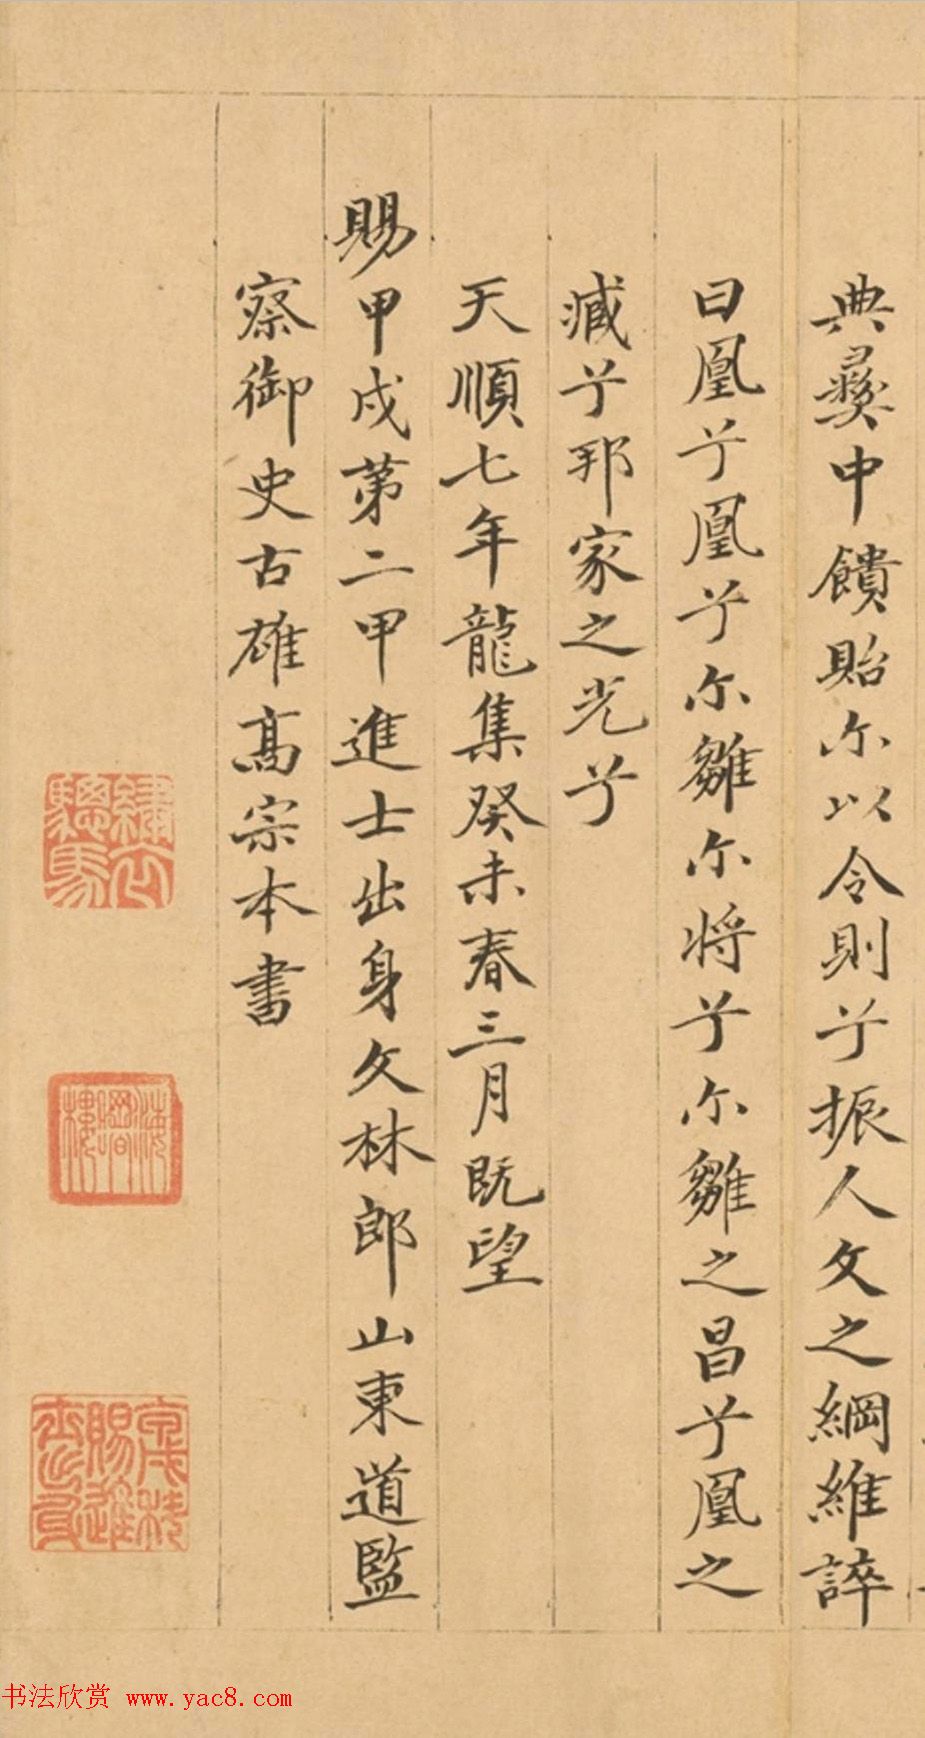 典彝中饋貽尔以令則兮振人文之綱維誶
曰凰兮凰兮尔雛尔将兮尔雛之昌兮凰之
臧兮邦家之光兮
天順七年龍集癸未春三月既望
賜甲戌第二甲進士出身文林郎山東道監
察御史古雄髙宗本書
繡衣驄馬
海岡樓
賜進
书法欣赏 www.yac8.com